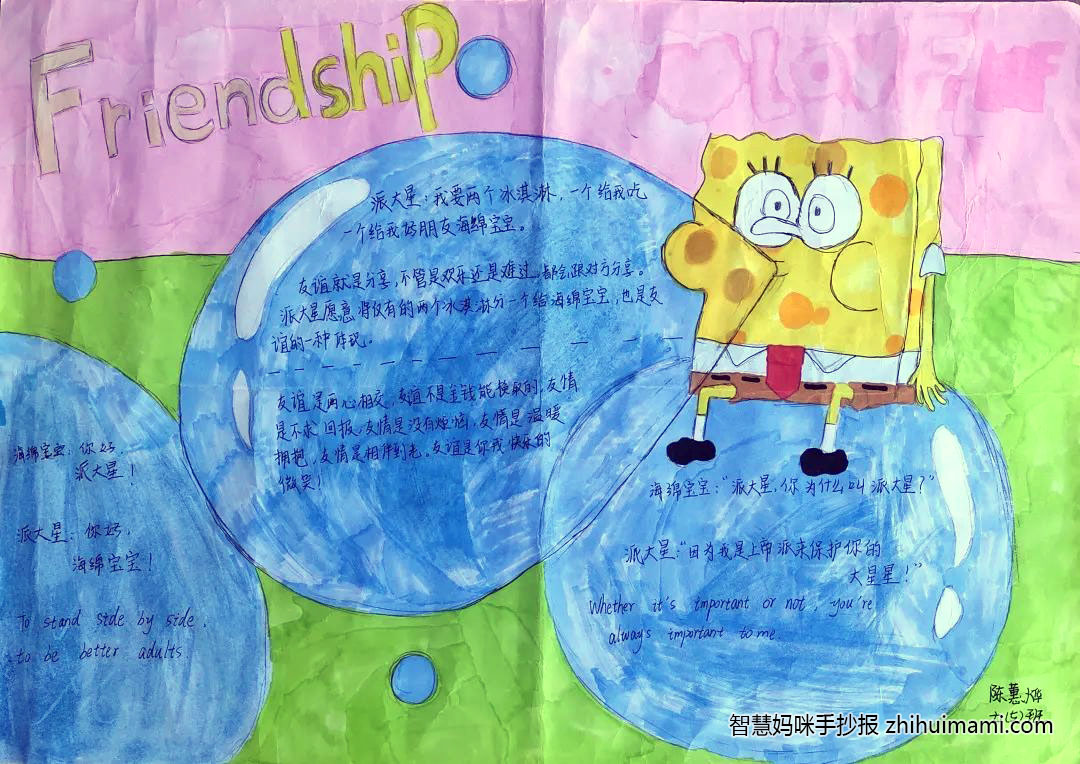 Friendship
LOVE
派大星：我要两个冰淇淋，一个给我吃
一个给我好朋友海绵宝宝。
友谊就是分享，不管是欢乐还是难过，都会跟对方分享。
派大星愿意将仅有的两个冰淇淋分一个给海绵宝宝，也是友
谊的一种体现。
友谊是两心相交，友谊不是金钱能换取的，友情
是不求回报，友情是没有烦恼，友情是温暖
拥抱，友情是相伴到老。友谊是你我快乐的
微笑！
海绵宝宝：你好，
派大星！
派大星：你好，
海绵宝宝！
To stand side by side，
to be better adults
海绵宝宝：“派大星，你为什么叫派大星？”
派大星：“因为我是上帝派来保护你的
大星星！”
Whether it's important or not, you're
always important to me
陈蕙烨
六(七)班
智慧妈咪手抄报 zhihuimami.com